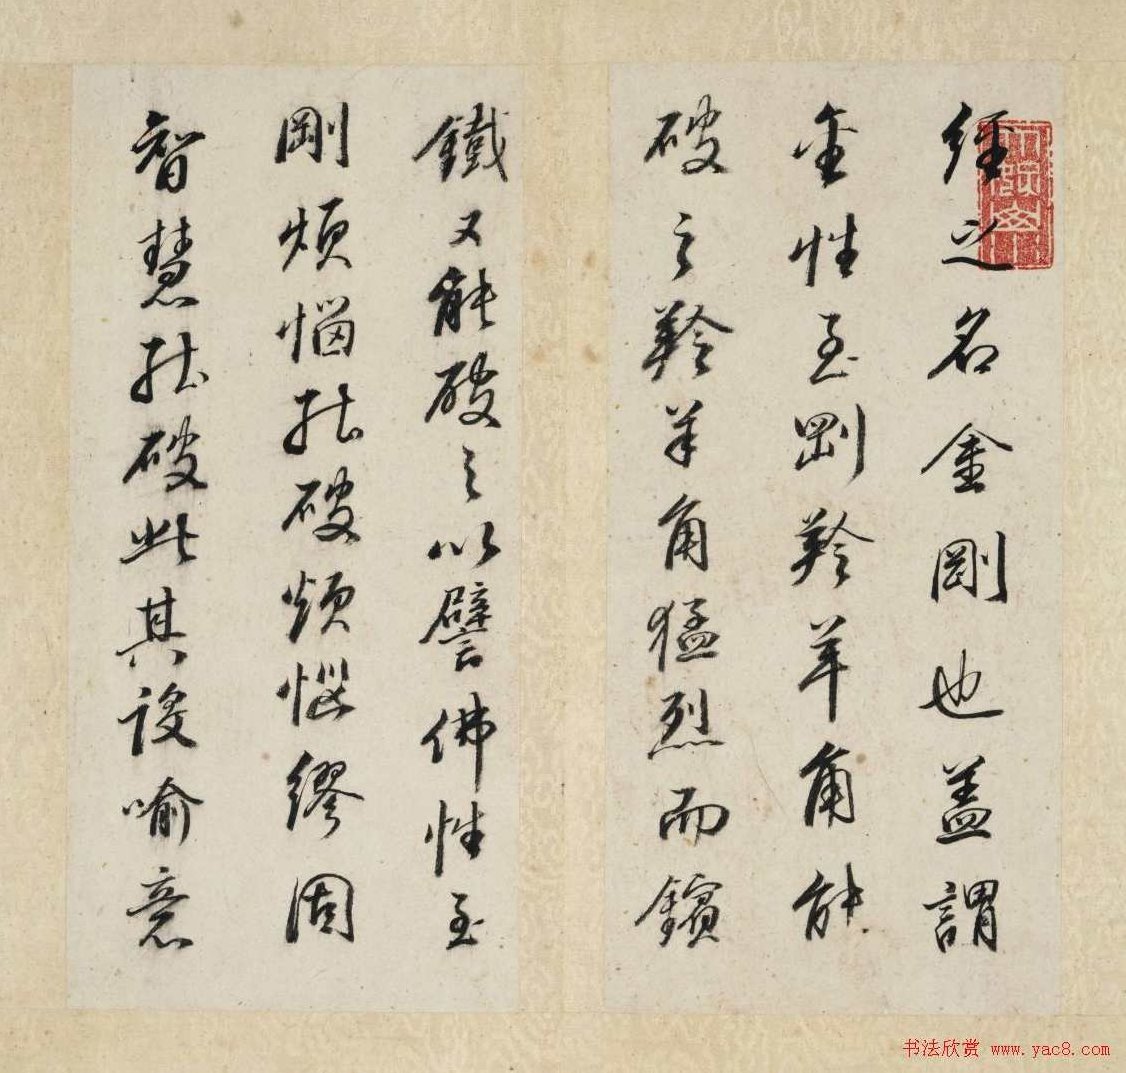 經之名金剛也蓋謂
金性至剛羚羊角能
破之羚羊角猛烈而鑌
鐵又能破之以譬佛性至
剛煩惱能破煩惱繆固
智慧能破此其設喻意
书法欣赏 www.yac8.com